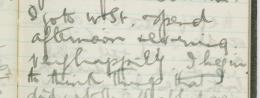 I go to W. St. & spend
afternoon & evening
very happily I begin
to think things that I